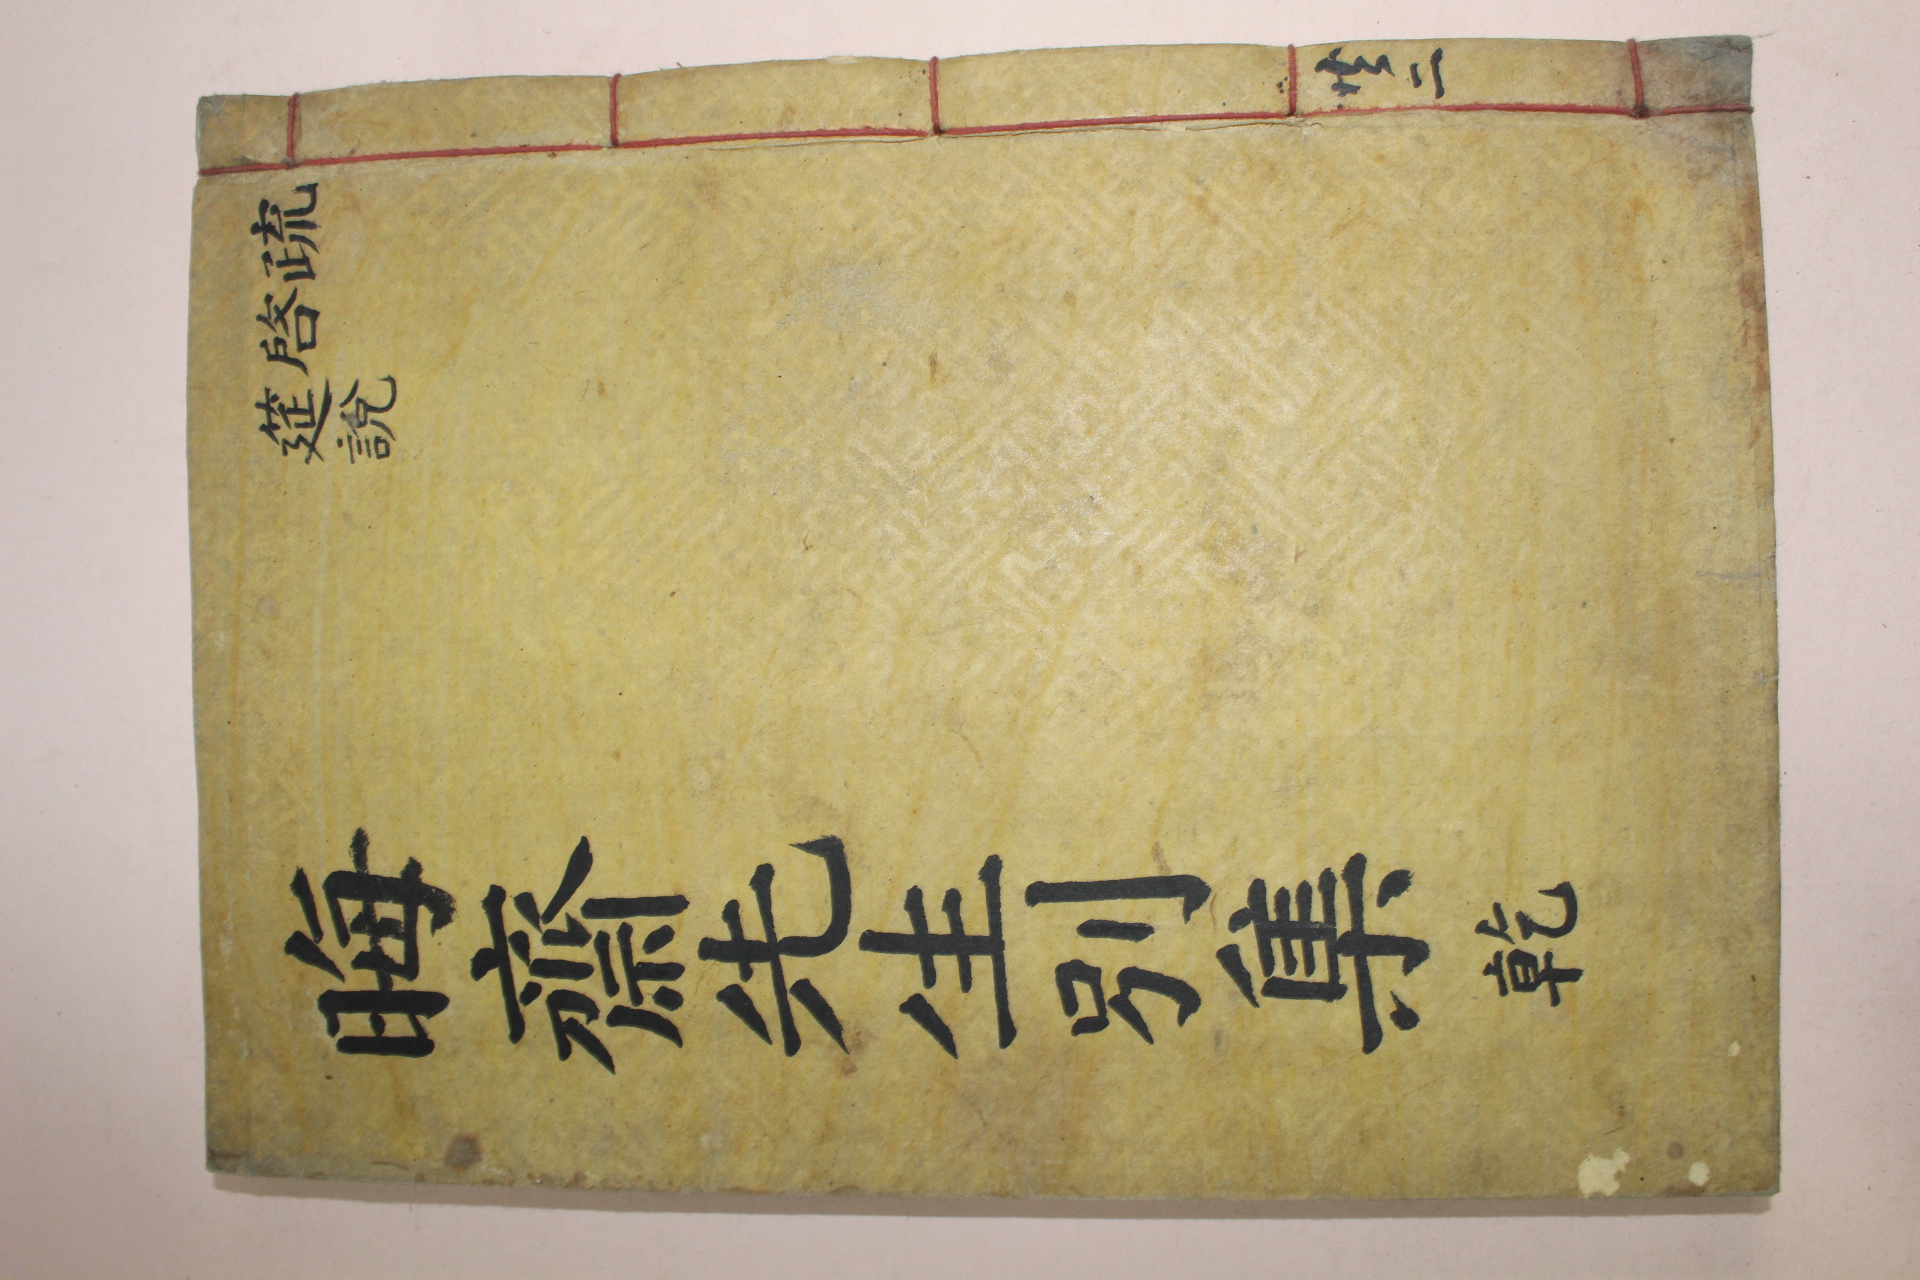 共二
疏
啓
筵說
晦齋先生別集 乾